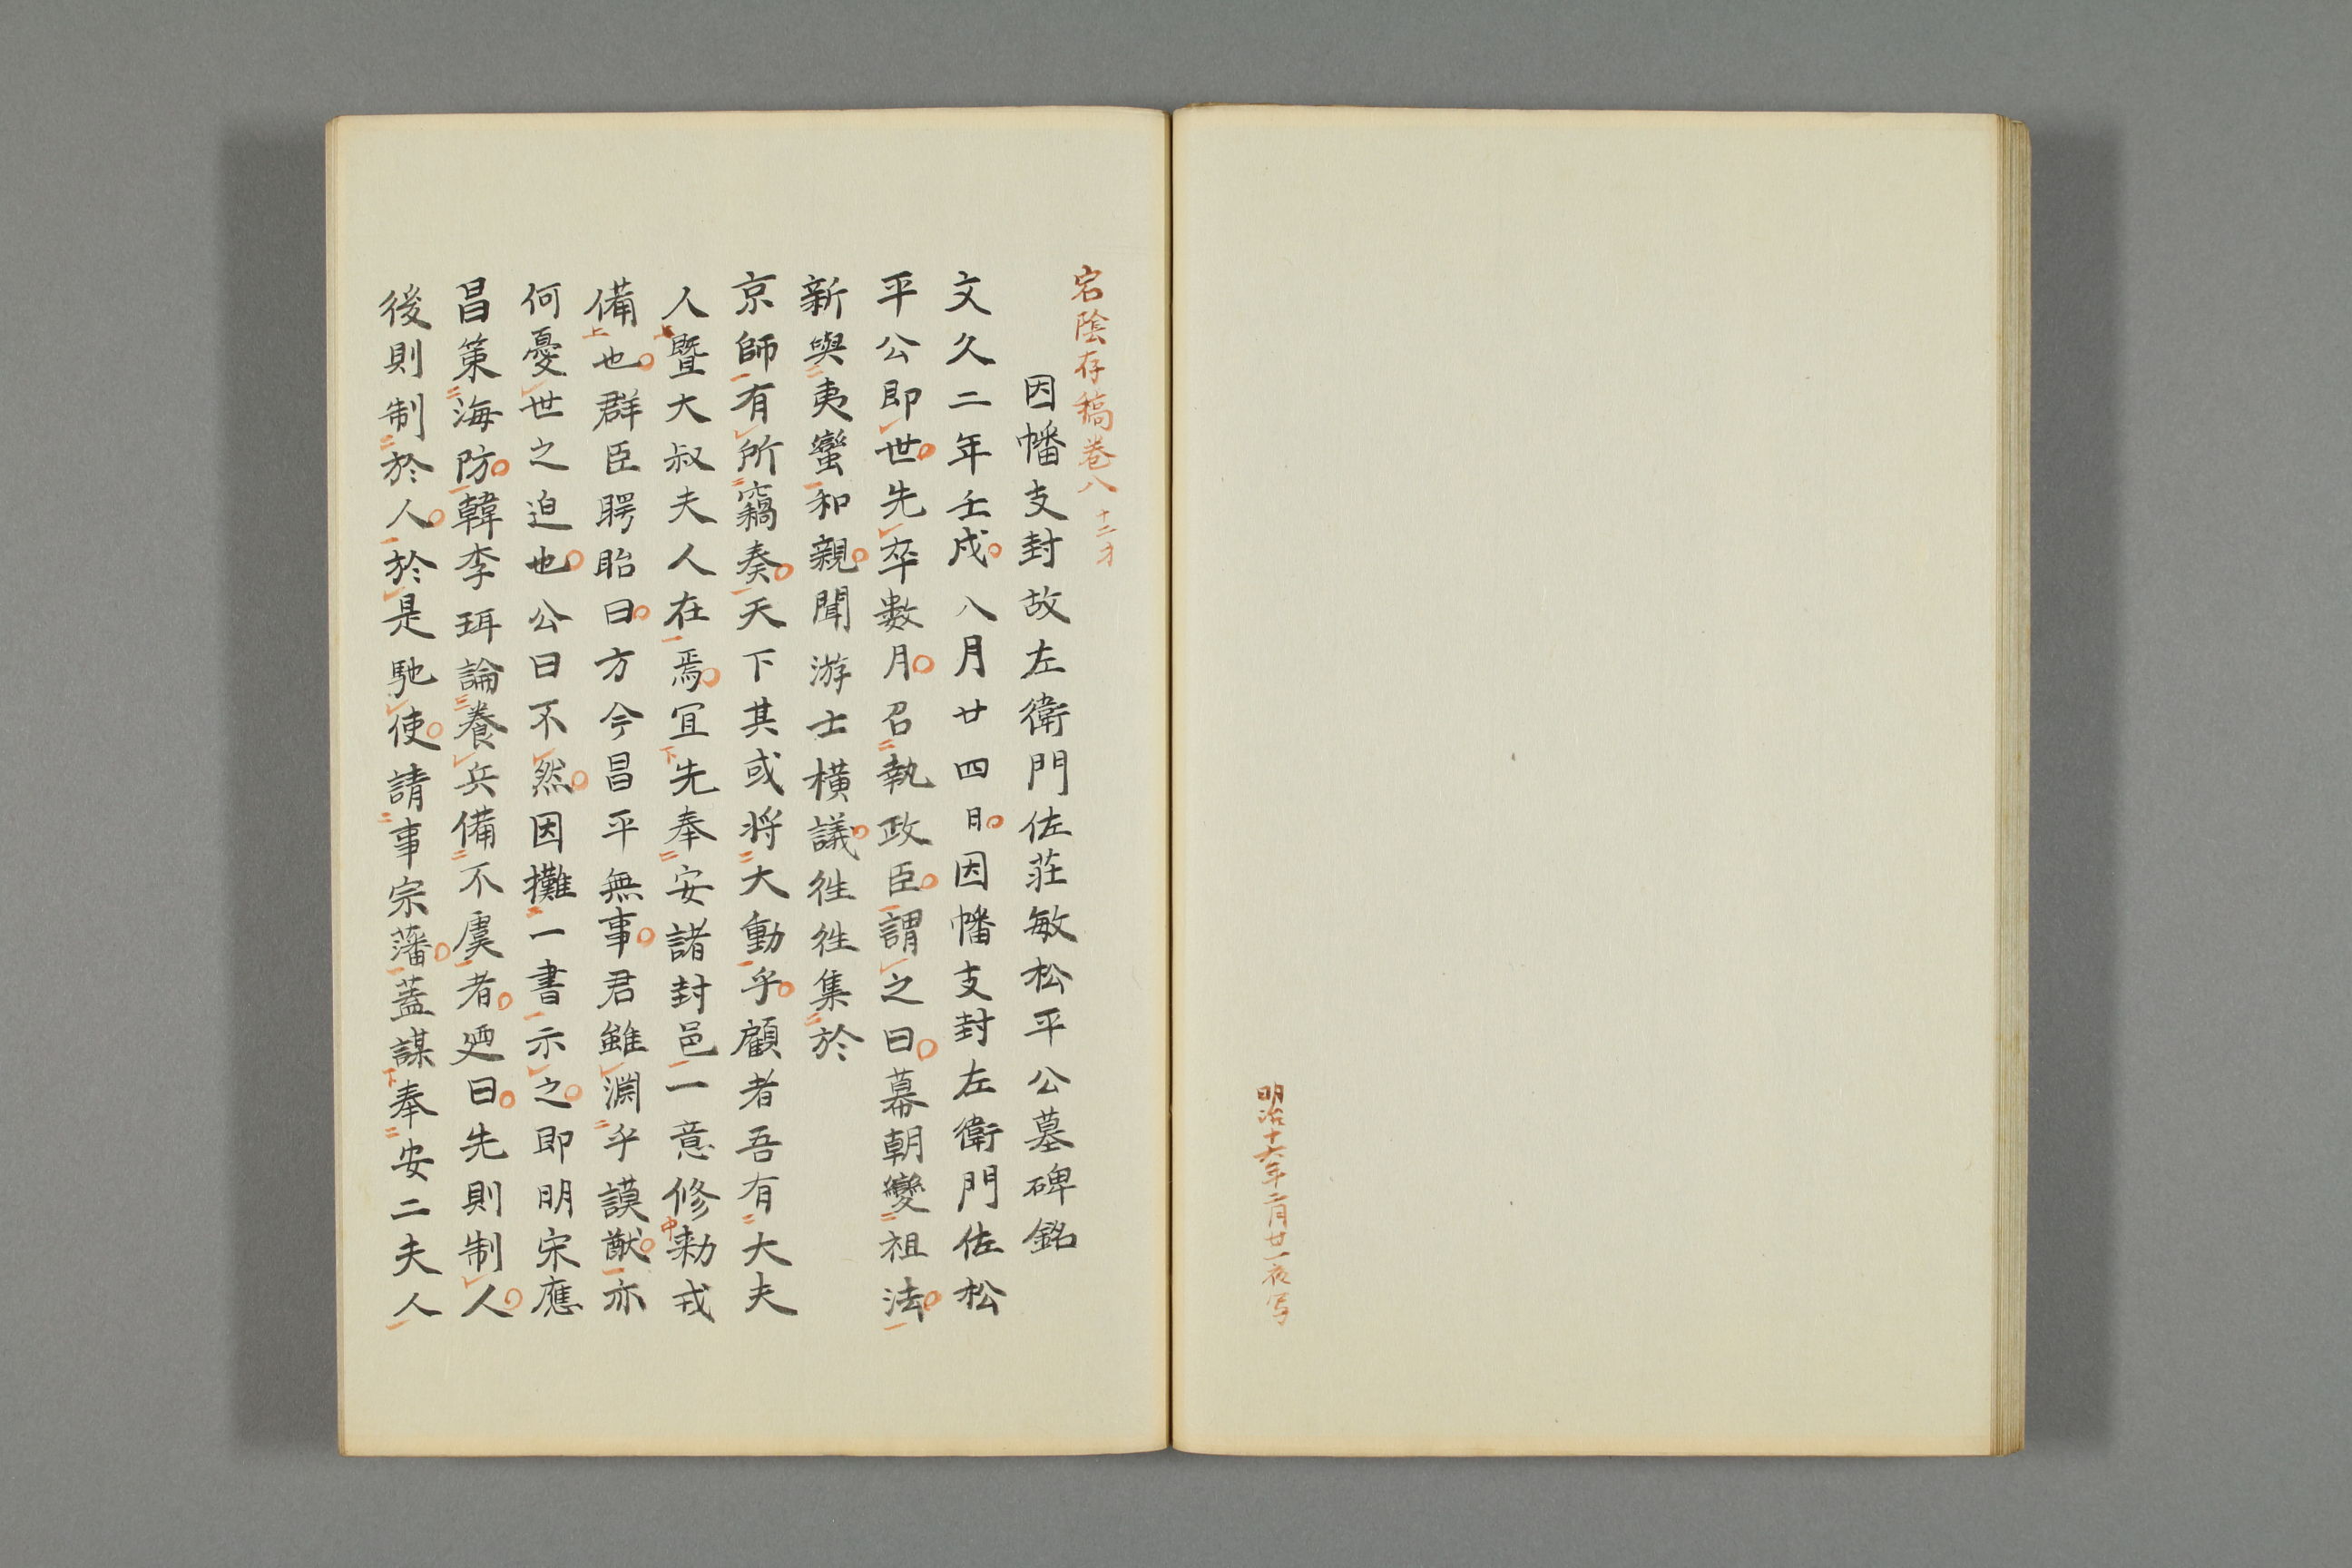 明治十六年二月廿一夜写
宕陰存稿巻八 十二才
因幡支封故左衛門佐荘敏松平公墓碑銘
文久二年壬戌八月廿四日因幡支封左衛門佐松
平公即世先卒數月召執政臣謂之曰幕朝變祖法
新與夷蠻和親聞游士横議徃徃集於
京師有所竊奏天下其或将大動乎顧者吾有大夫
人暨大叔夫人在焉宜先奉安諸封邑一意修勅戎
備也群臣腭眙曰方今昌平無事君雖淵乎謨猷亦
何憂世之迫也公曰不然因攤一書示之即明宋應
昌策海防韓李珥論養兵備不虞者廼曰先則制人
後則制於人於是馳使請事宗藩蓋謀奉安二夫人